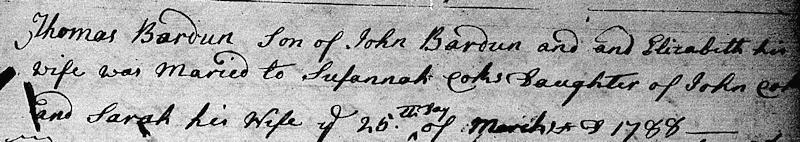 Thomas Bardun Son of John Bardun and and Elizabeth his
wife was Maried to Susannah Coks Daughter of John Cok
and Sarah his Wife ye 25 th Day of March A D 1788